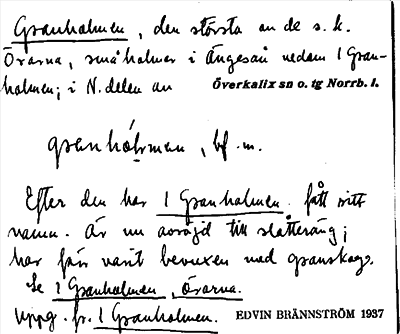 Granholmen, den största av de s. k.
Örarna, småholmar i Ängesån nedom 1 Gran-
holmen; i N. delen av Överkalix sn o. tg Norrb. l.
granhólmen, bf. m.
Efter den har 1 Granholmen fått sitt
namn. Är nu avröjd till slåtteräng;
har förr varit bevuxen med granskog.
Se 1 Granholmen, Örarna.
Uppg. fr. 1 Granholmen. EDVIN BRÄNNSTRÖM 1937